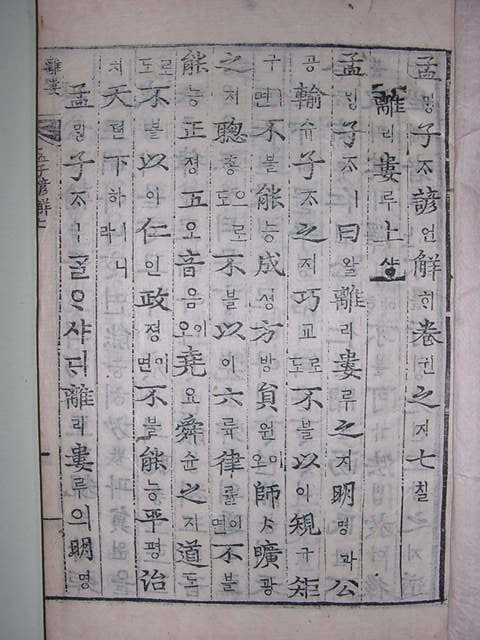 孟ᄆᆡᆼ子ᄌᆞ諺언解ᄒᆡ卷권之지七칠
離리婁루上샹
孟ᄆᆡᆼ子ᄌᆞㅣ曰왈離리婁루之지明명과公
공輸슈子ᄌᆞ之지巧교로도不불以이規규矩
구면不불能능成셩方방員원이오師ᄉᆞ曠광
之지聰총으로도不불以이六륙律률이면不불
能능正졍五오音음이오堯요舜슌之지道도
로도不불以이仁인政졍이면不불能능平평治
치天텬下하ㅣ니라
孟ᄆᆡᆼ子ᄌᆞㅣᄀᆞᆯᄋᆞ샤ᄃᆡ離리婁루의明명
離婁
孟子諺解七